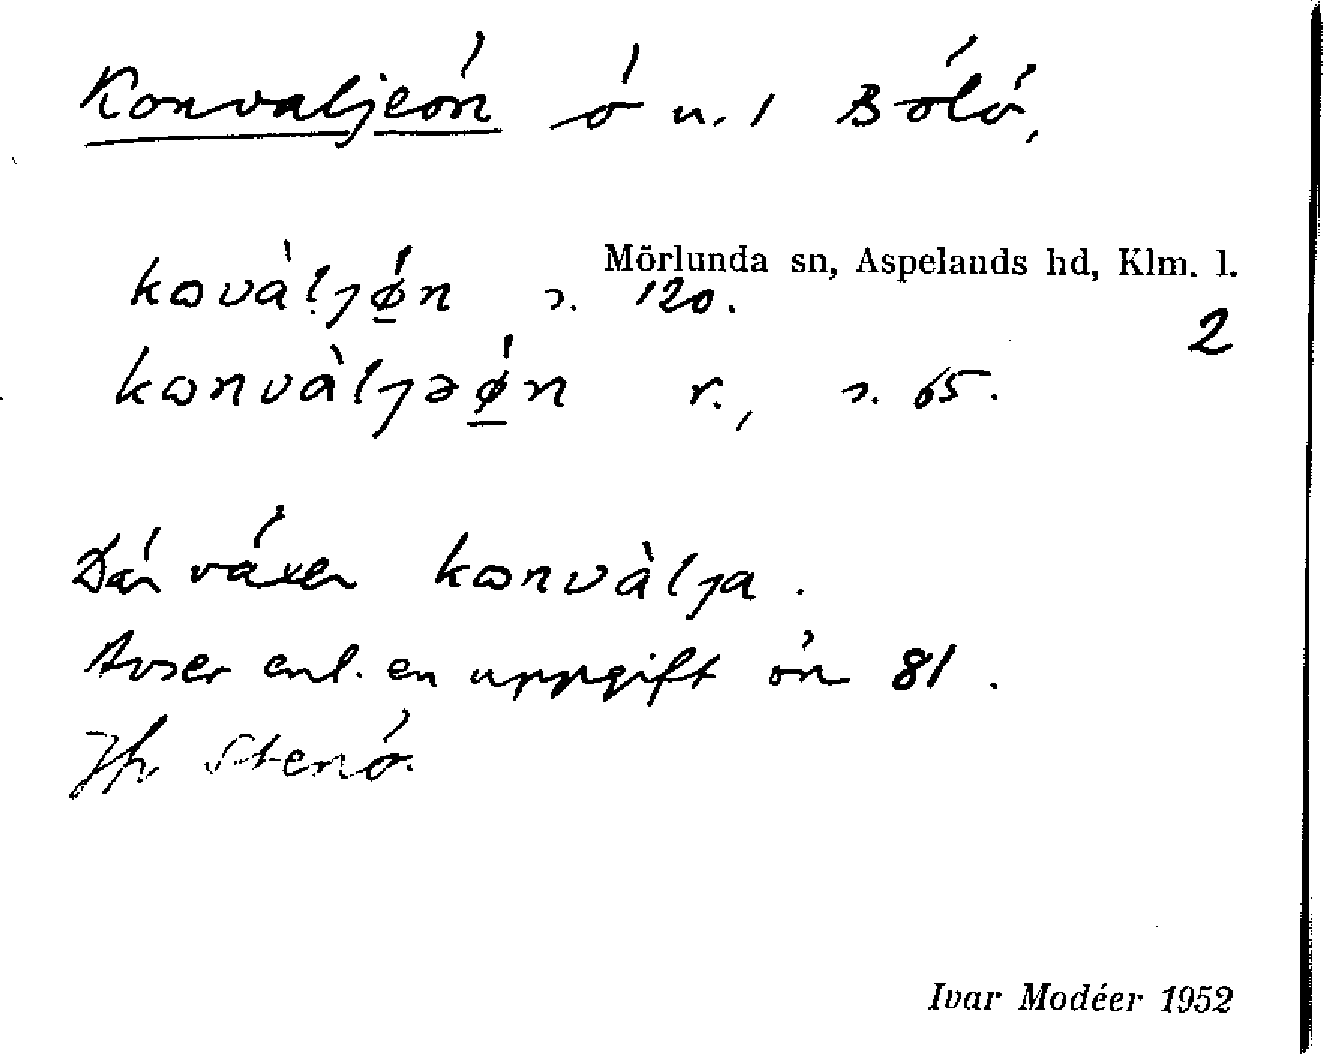 Konvaljeön ö n. 1 Bölö,
Mörlunda sn, Aspelands hd, Klm. l.
kovàljǿ̱n s. 120.
2
kɷnvàljəǿ̱n r., s. 65.
Där växer kɷnvàlja.
Avser enl. en uppgift ön 81.
Jfr Stenö.
Ivar Modéer 1952